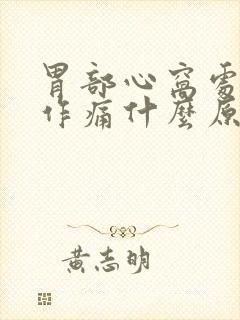 胃部心窩處
作痛什麼原
黃志明